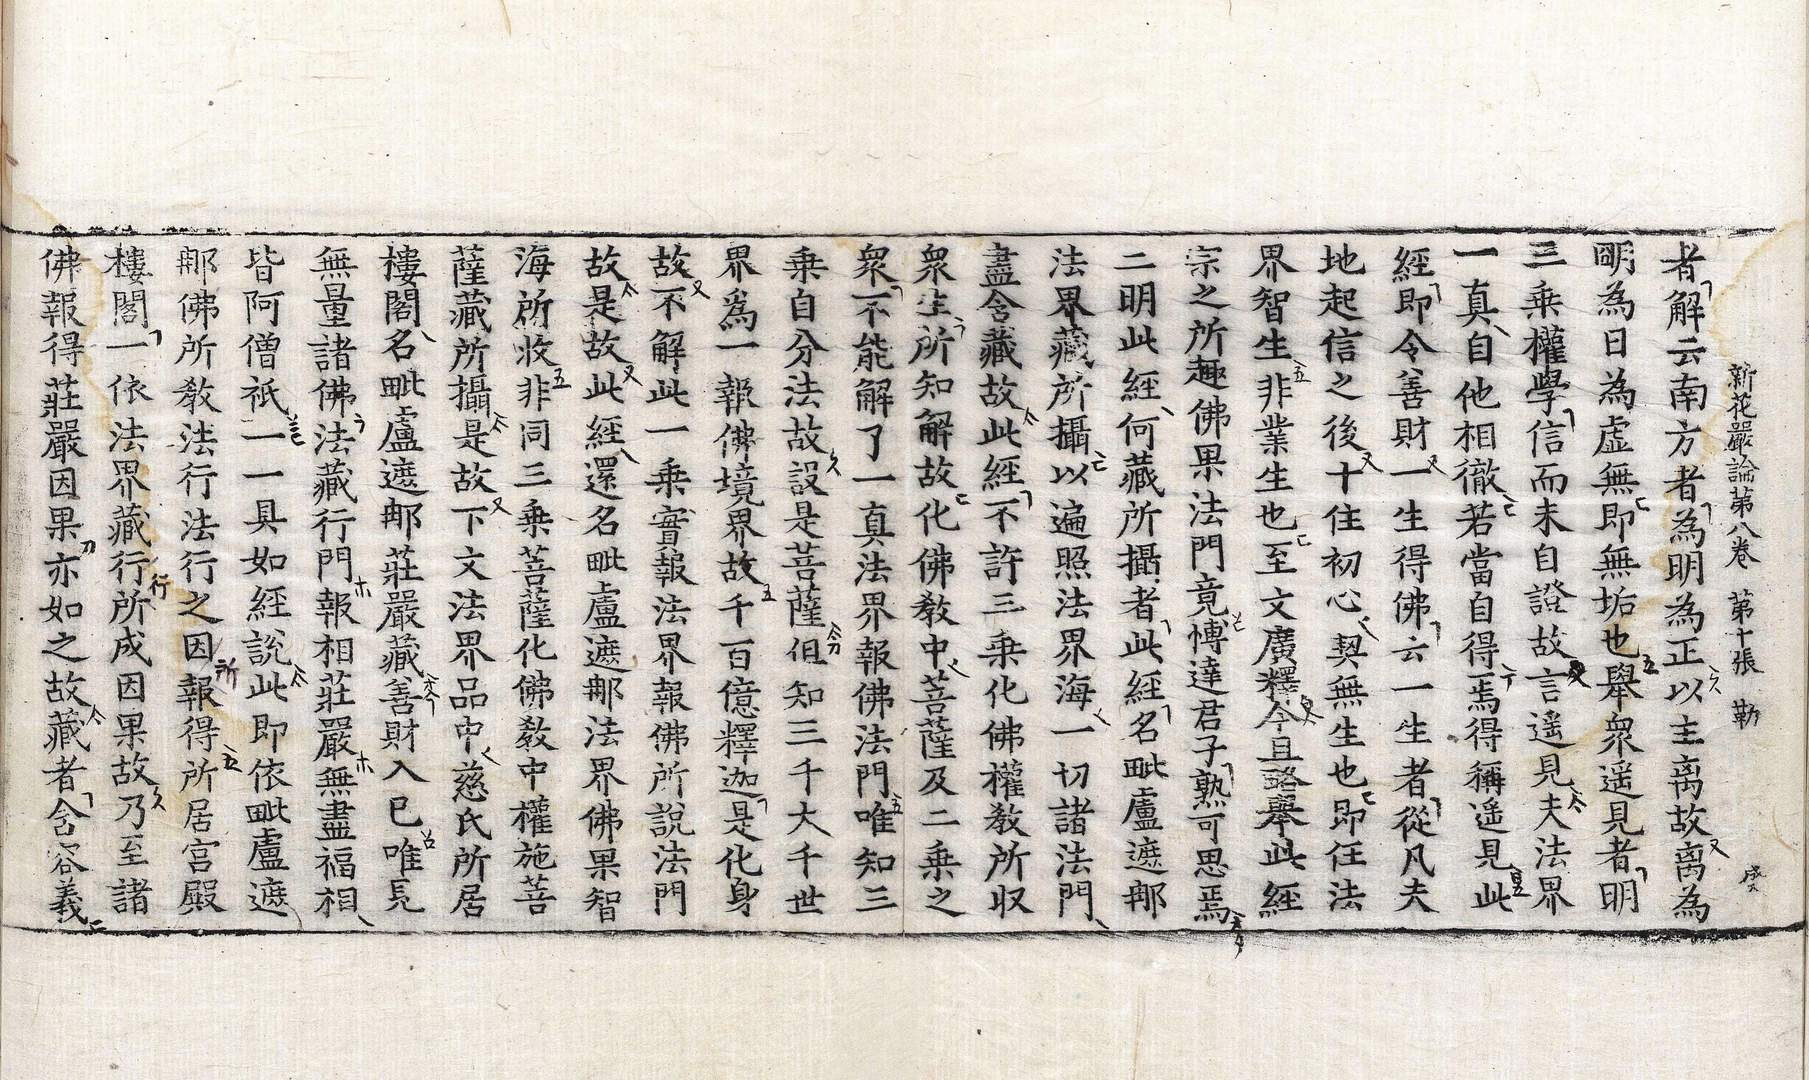 新花嚴論第八卷　第十張　勒
者解云南方者為明為正以主离故离為
明為日為虛無即無垢也舉衆遥見者明
三乗權學信而未自證故言遥見夫法界
一真自他相徹若當自得焉得稱遥見此
經即令善財一生得佛云一生者從凡夫
地起信之後十住初心契無生也即任法
界智生非業生也至文廣釋今且略舉此經
宗之所趣佛果法門竟慱達君子熟可思焉
二明此經何藏所攝者此經名毗盧遮那
法界藏所攝以遍照法界海一切諸法門
盡含藏故此經不許三乗化佛權教所収
衆生所知解故化佛教中菩薩及二乗之
衆不能解了一真法界報佛法門唯知三
乗自分法故設是菩薩但知三千大千世
界爲一報佛境界故千百億釋迦是化身
故不解此一乗實報法界報佛所說法門
故是故此經還名毗盧遮那法界佛果智
海所收非同三乗菩薩化佛教中權施菩
薩藏所攝是故下文法界品中慈氏所居
樓閣名毗盧遮那莊嚴藏善財入已唯見
無量諸佛法藏行門報相莊嚴無盡福相
皆阿僧祇一一具如經說此即依毗盧遮
那佛所教法行法行之因報得所居宫殿
樓閣一依法界藏行所成因果故乃至諸
佛報得莊嚴因果亦如之故藏者含容義